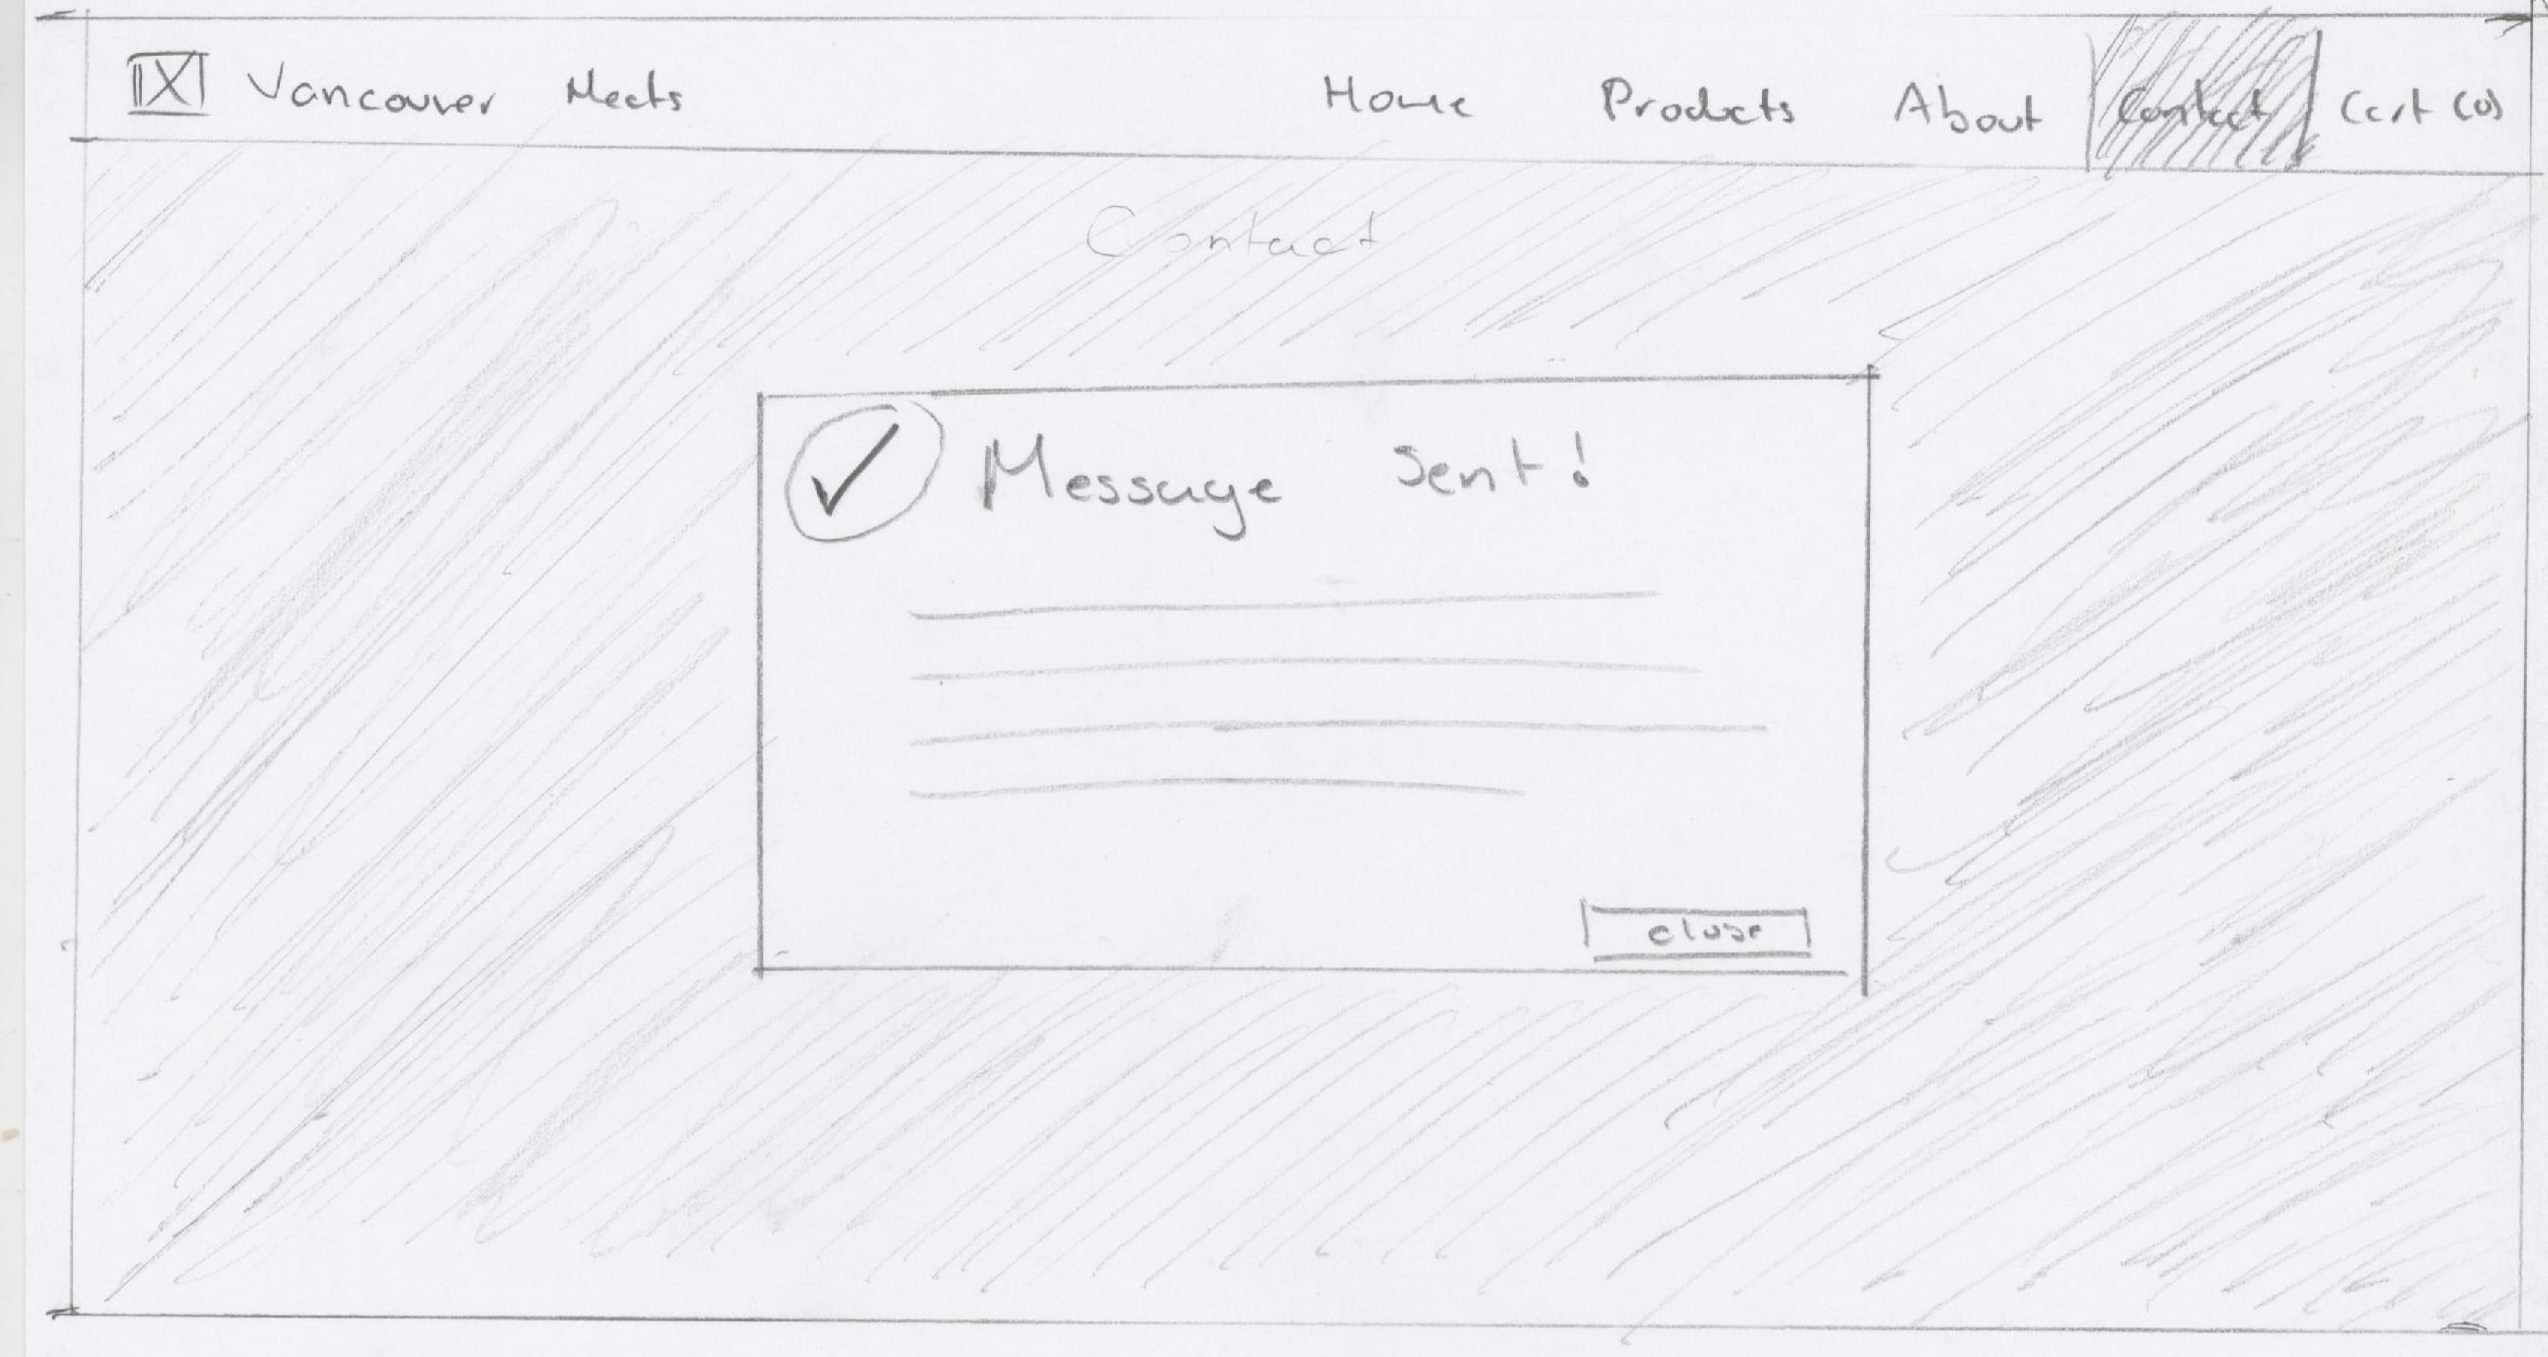 Vancouver Meats
Home Products About Contact Cart (0)
Contact
Message Sent!
close